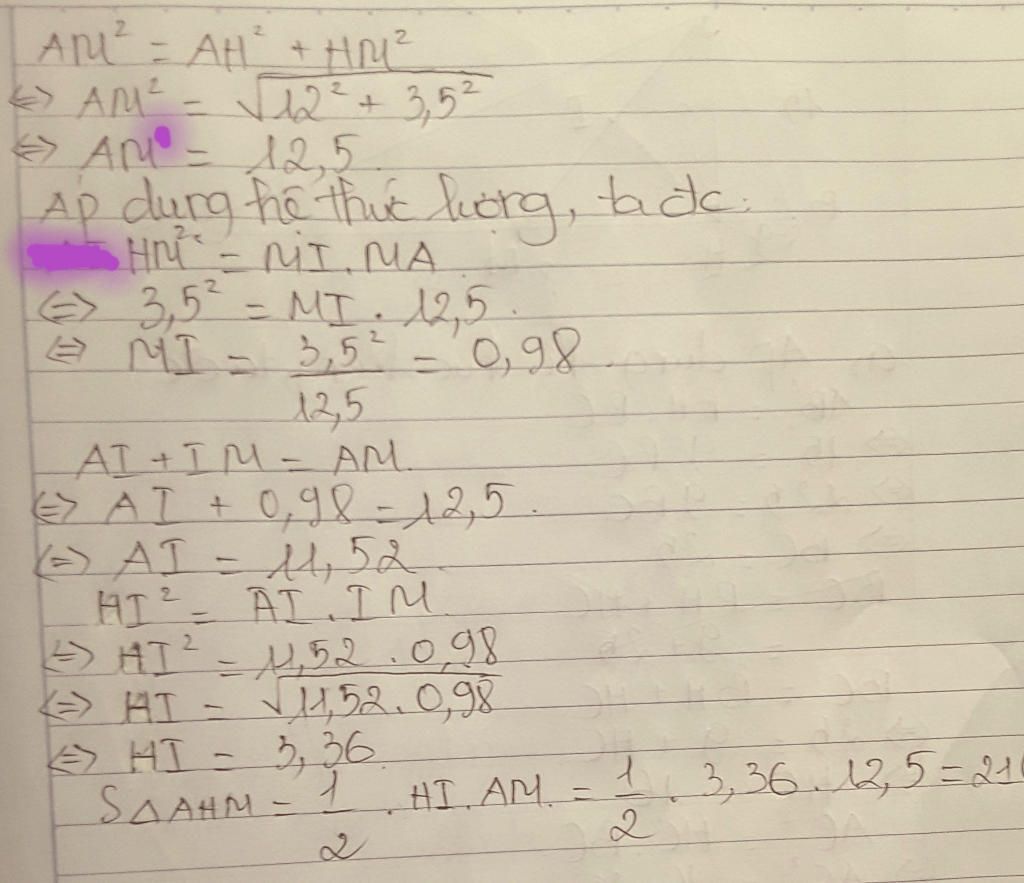 AM² = AH² + HM²
⇔ AM² = √12² + 3,5²
⇔ AM = 12,5
Áp dụng hệ thức lượng, ta đc:
HM² = MI . MA
⇔ 3,5² = MI . 12,5.
⇔ MI = 3,5²/12,5 = 0,98
AI + IM = AM.
⇔ AI + 0,98 = 12,5.
⇔ AI = 11,52
HI² = AI . IM
⇔ HI² = 11,52 . 0,98
⇔ HI = √11,52 . 0,98
⇔ HI = 3,36
S△AHM = 1/2 . HI . AM. = 1/2 . 3,36 . 12,5 = 21